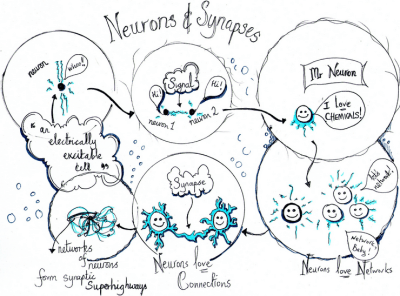 Neurons & Synapses
neuron
whee!!
"an
electrically
excitable
cell"
Hi!
Signal
Hi!
neuron 1
neuron 2
Mr Neuron
I love
CHEMICALS!
Let's
network!
Network,
Baby!
Neurons love Networks
Synapse
Neurons love
Connections
networks
of neurons
form synaptic
Superhighways